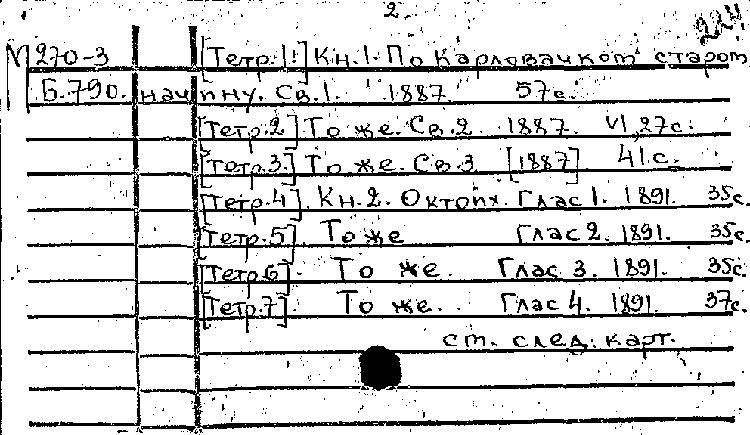 2
224
М 270-3 [Тетр.1.] Кн.1. По Карловачком старом
Б.790. начпну. Св.1. 1887. 57с.
[Тетр.2] То же. Св.2. 1887. VI,27с.
[Тетр.3.] То же. Св.3. [1887] 41.с.
[Тетр.4]. Кн.2. Октоих. Глас 1. 1891. 35с.
[Тетр.5]. То же Глас 2. 1891. 35с.
[Тетр.6] То же. Глас 3. 1891. 35с.
[Тетр.7] То же. Глас 4. 1891. 37с.
ст. след. карт.